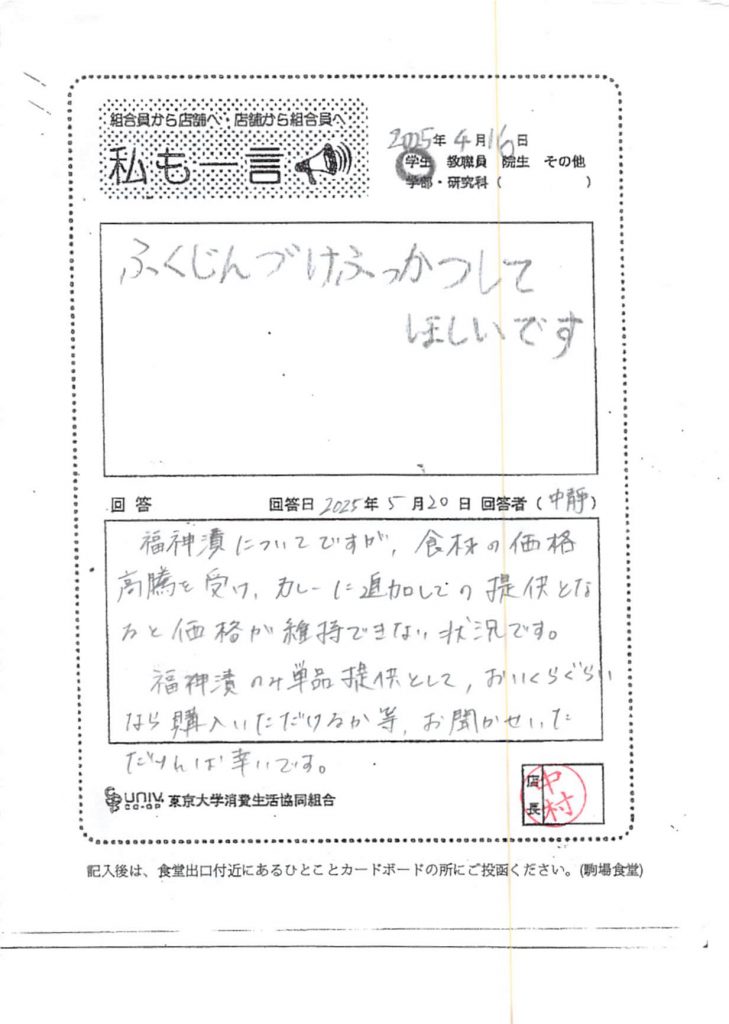 組合員から店舗へ・店舗から組合員へ
私も一言
2025年4月16日
学生 教職員 院生 その他
学部・研究科( )
ふくじんづけふっかつして
ほしいです
回答 回答日 2025年5月20日 回答者(中静)
福神漬についてですが、食材の価格
高騰を受け、カレーに追加しての提供とな
ると価格が維持できない状況です。
福神漬のみ単品提供として、おいくらぐらい
なら購入いただけるか等、お聞かせいた
だければ幸いです。
UNIV.
CO-OP
東京大学消費生活協同組合
店長
中村
記入後は、食堂出口付近にあるひとことカードボードの所にご投函ください。(駒場食堂)